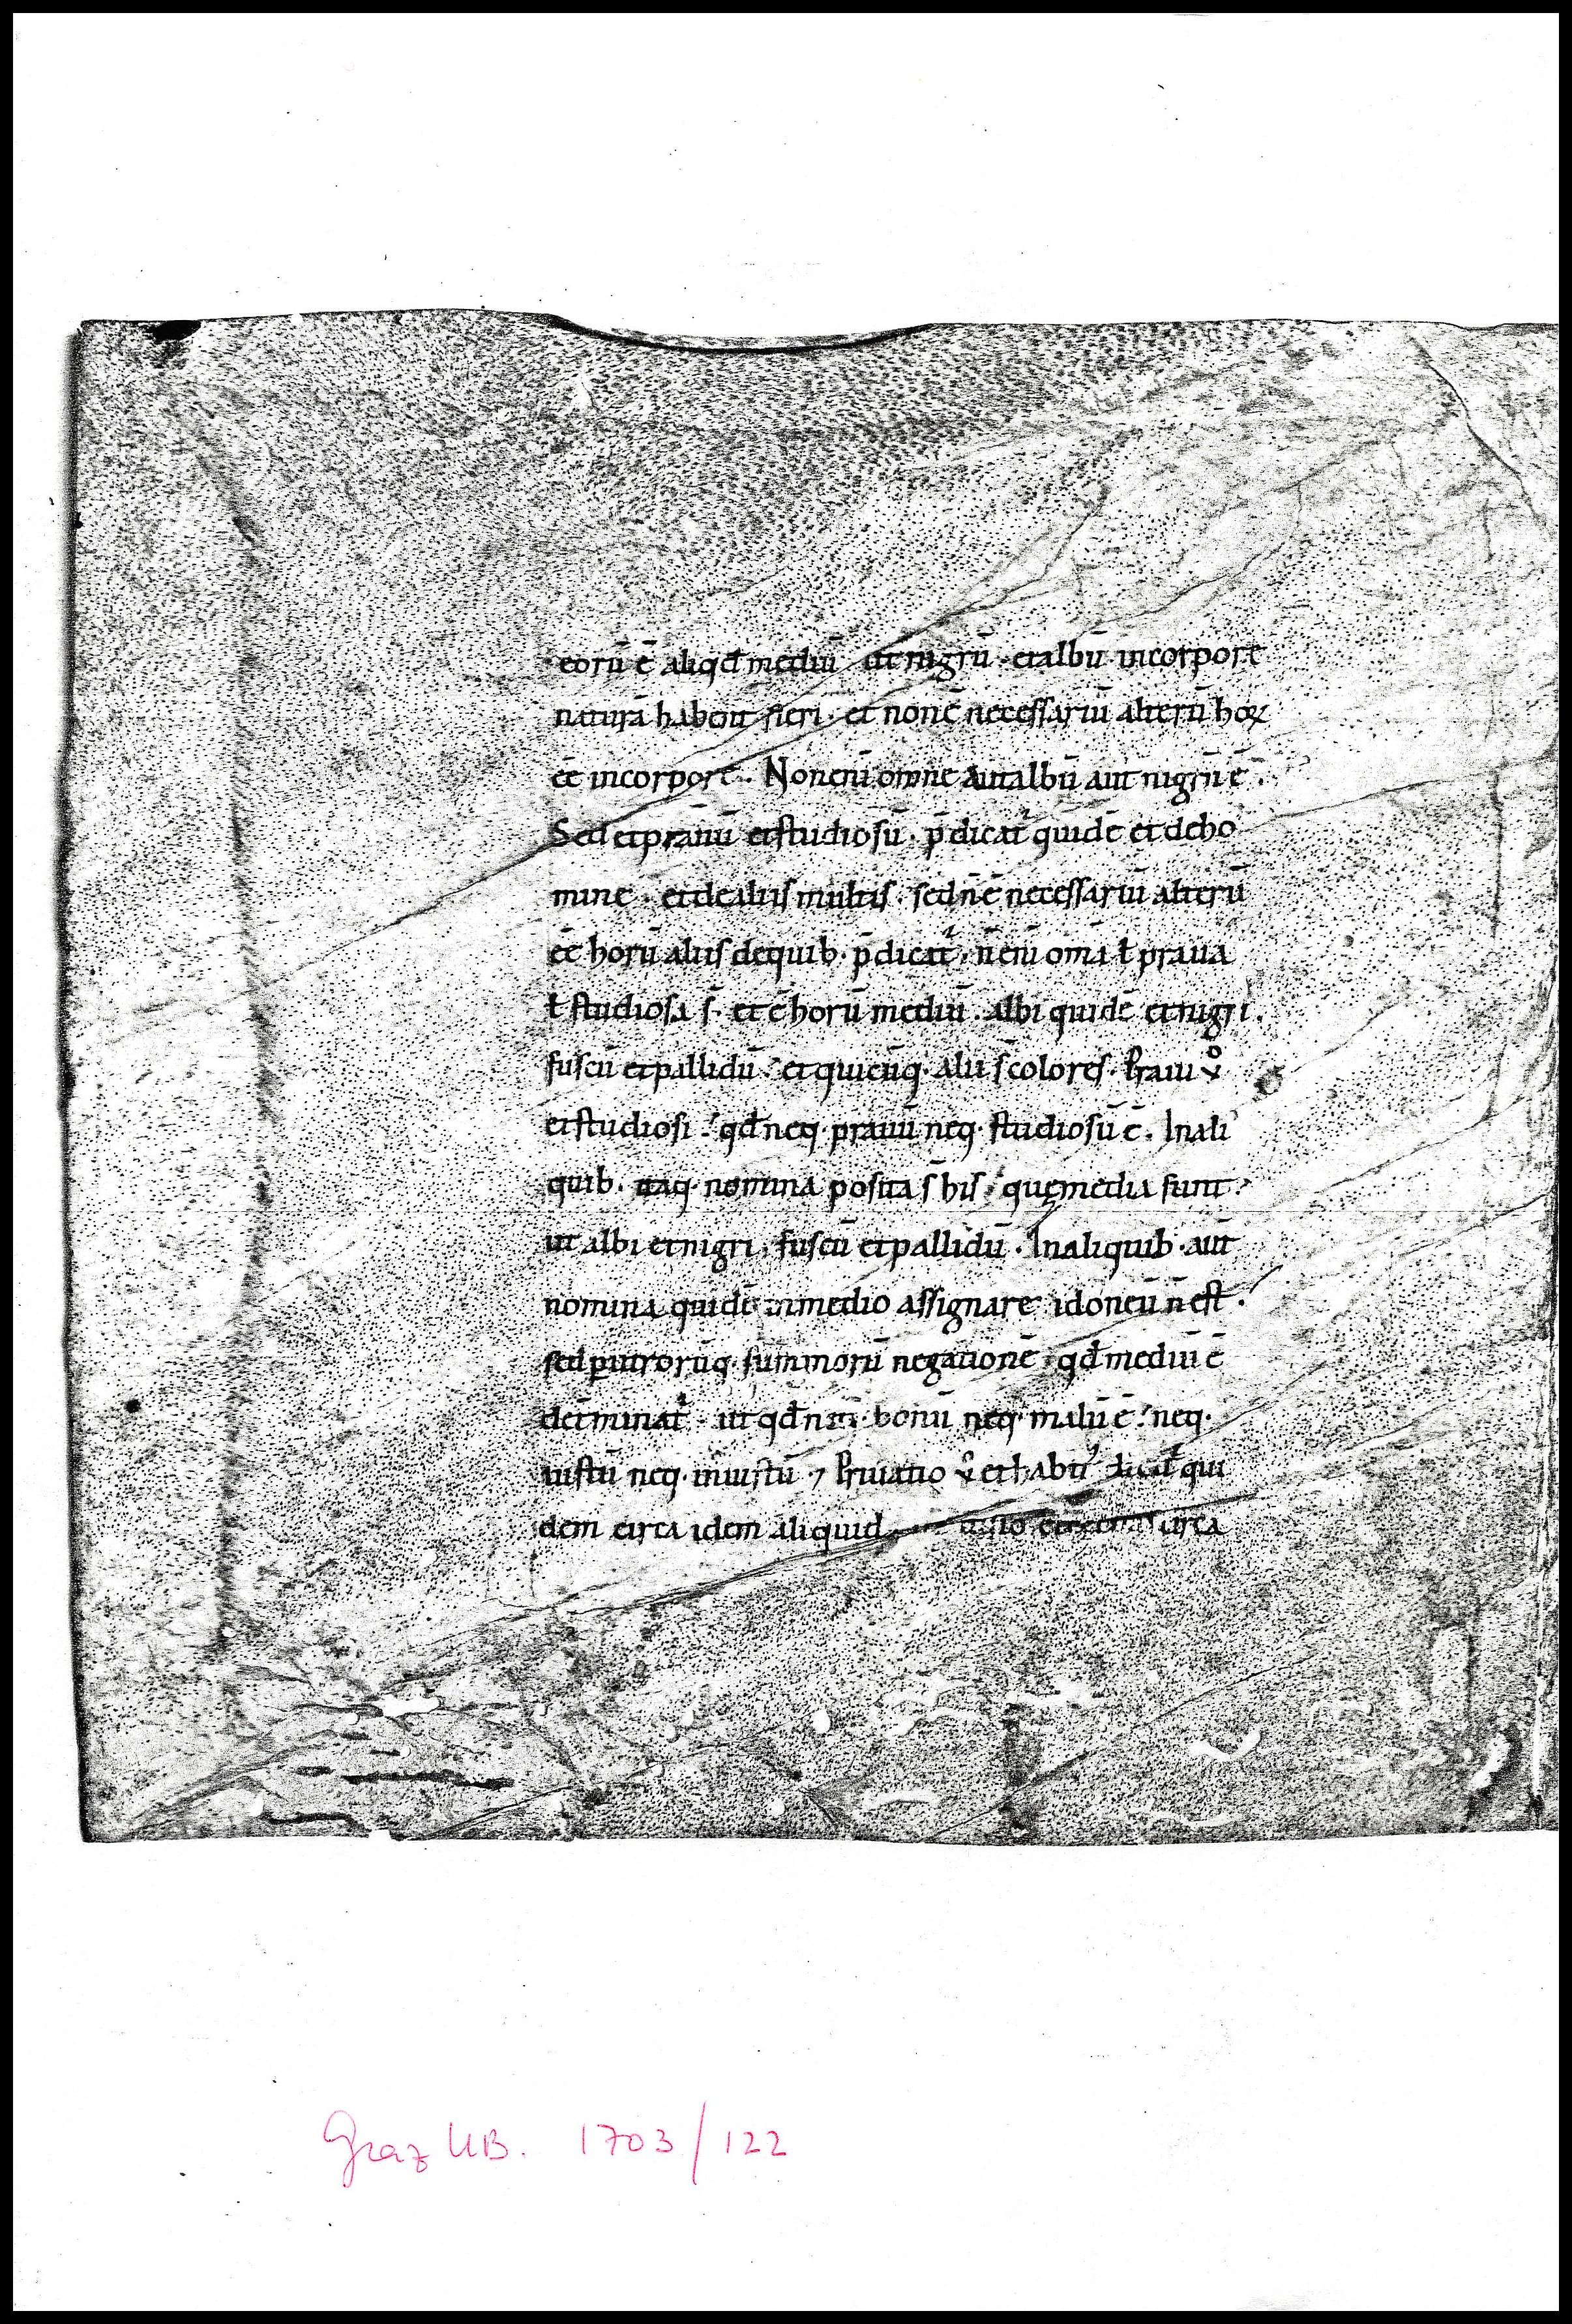 eorū ē aliqđ mediū ut nigrū · et albū in corpore
naturā habent fieri · et non ē necessariū alterū hoꝝ
eē in corpore · Non enī omne aut albū aut nigrū ē ·
Sed et prauū et studiosū · p̄dicat᷑ quidē et de ho
mine · et de aliis multis · sed n̄ ē necessariū alterū
eē horū aliis de quib · p̄dicat᷑ · n̄ enī om̄ia ł praua
ł studiosa s̄ · et ē horū mediū · albi quidē et nigri ·
fuscū et pallidū · et quicūq · alii s̄ colores · Praui v̊
et studiosi · qđ neq · prauū neq · studiosū ē · In ali
quib · itaq · nomina posita s̄ his · quę media sunt ·
ut albi et nigri · fuscū et pallidū · In aliquib · aut̄
nomina quidē in medio assignare idoneū n̄ est ·
sed p utrorūq · summorū negationē · qđ mediū ē
det̄minat᷑ · ut qđ neq · bonū neq · malū ē · neq ·
iustū neq · iniustū · Priuatio v̊ et habit᷒ qui
dem circa idem aliquid circa
Graz UB. 1703/122